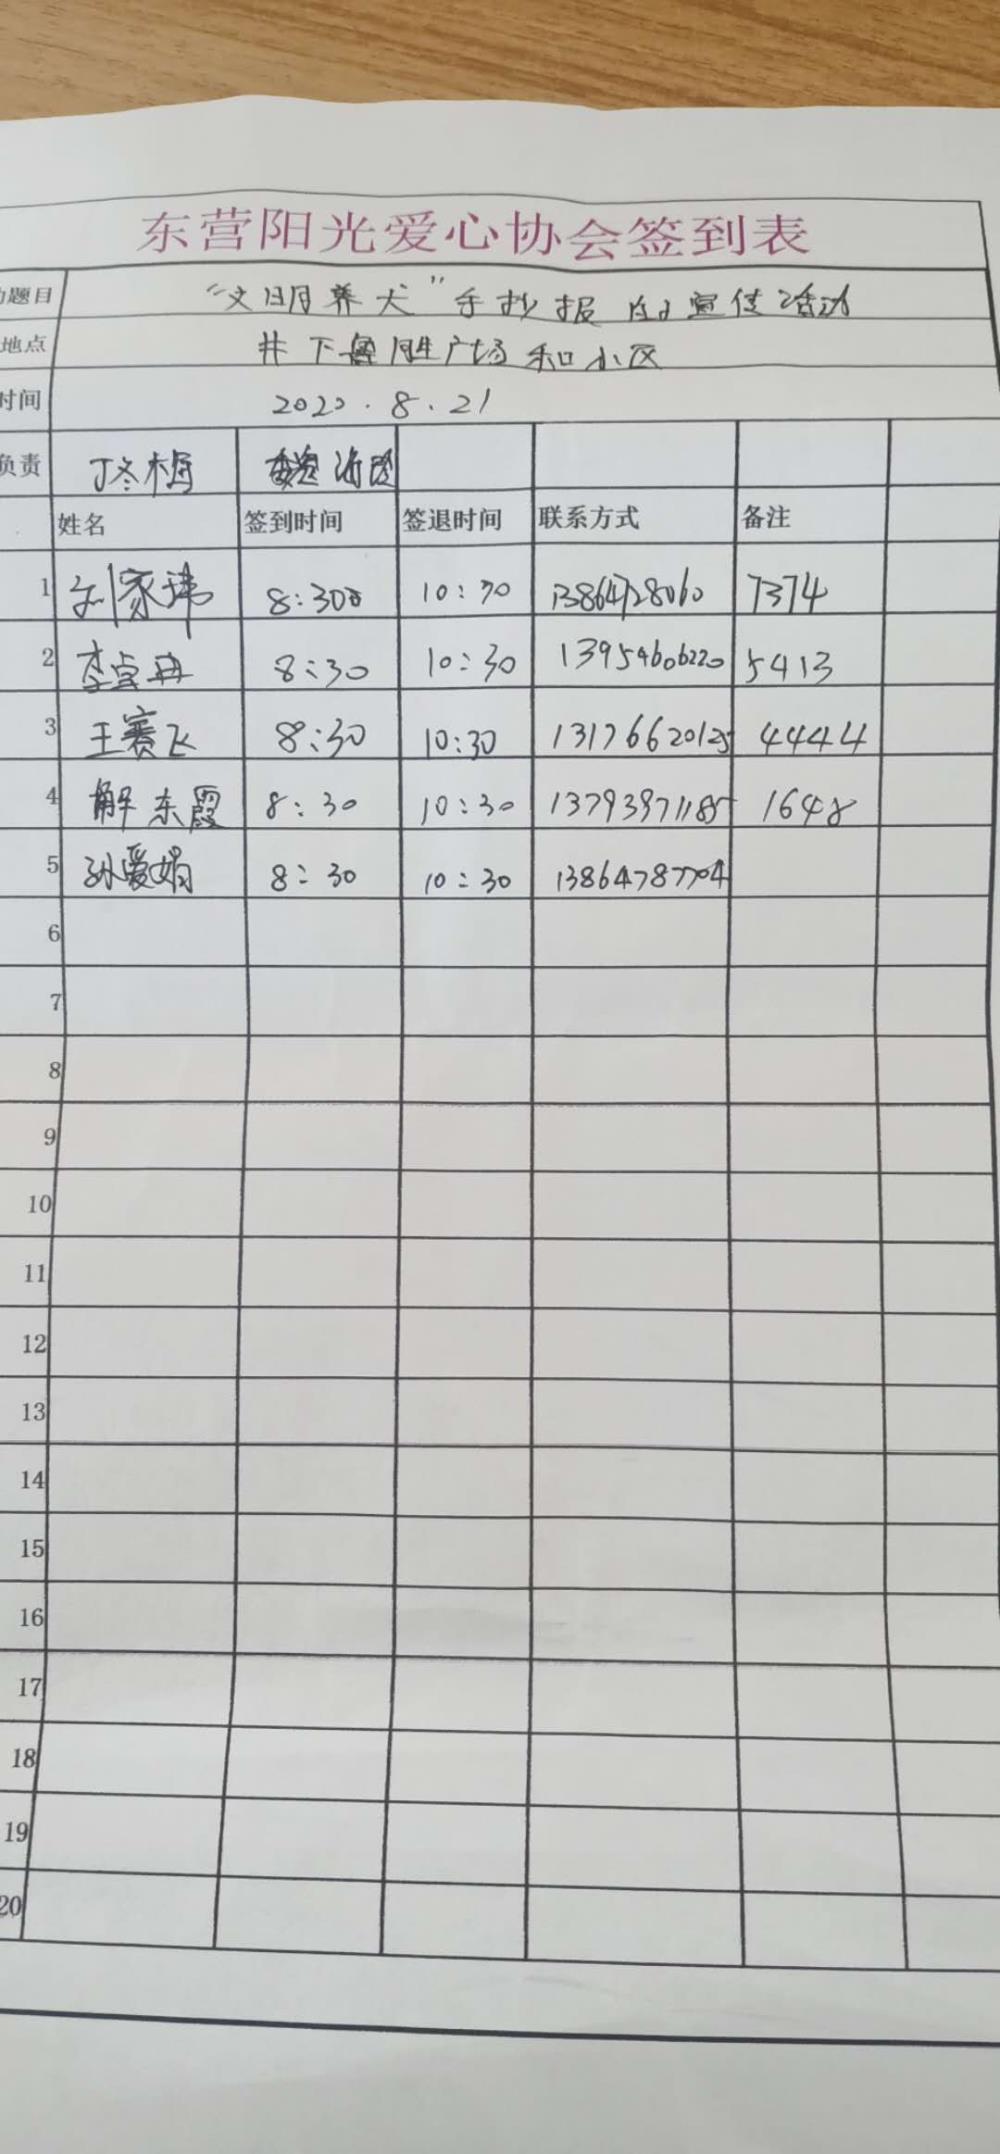 东营阳光爱心协会签到表
动题目 "文明养犬"手抄报的宣传活动
地点 井下鲁胜广场和小区
时间 2020.8.21
负责 丁冬梅
姓名 签到时间 签退时间 联系方式 备注
1 刘家玮 8:30 10:30 13864728060 7374
2 李卓冉 8:30 10:30 13954606220 5413
3 王赛飞 8:30 10:30 13176620125 4444
4 解东霞 8:30 10:30 13793971185 1648
5 孙爱娟 8:30 10:30 13864787704
6
7
8
9
10
11
12
13
14
15
16
17
18
19
20